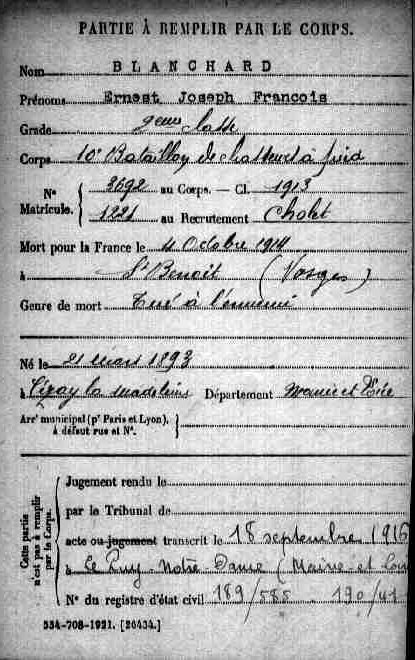 PARTIE À REMPLIR PAR LE CORPS.
Nom BLANCHARD
Prénoms Ernest Joseph Francois
Grade 2eme classe
Corps 10e Bataillon de chasseurs à pied
N° Matricule. 3692 au Corps. — Cl. 1913
1221 au Recrutement Cholet
Mort pour la France le 4 Octobre 1914
à St Benoit (Vosges)
Genre de mort Tué à l'ennemi
Né le 21 mars 1893
à Cizay la Madeleine Département Maine et Loire
Arr^t municipal (p^r Paris et Lyon),
à défaut rue et N°.
Cette partie n'est pas à remplir par le Corps.
Jugement rendu le
par le Tribunal de
acte ou jugement transcrit le 18 septembre 1916
à Le Puy-Notre-Dame (Maine-et-Loir
N° du registre d'état civil 189/585 190/41
534-708-1921. [26434.]